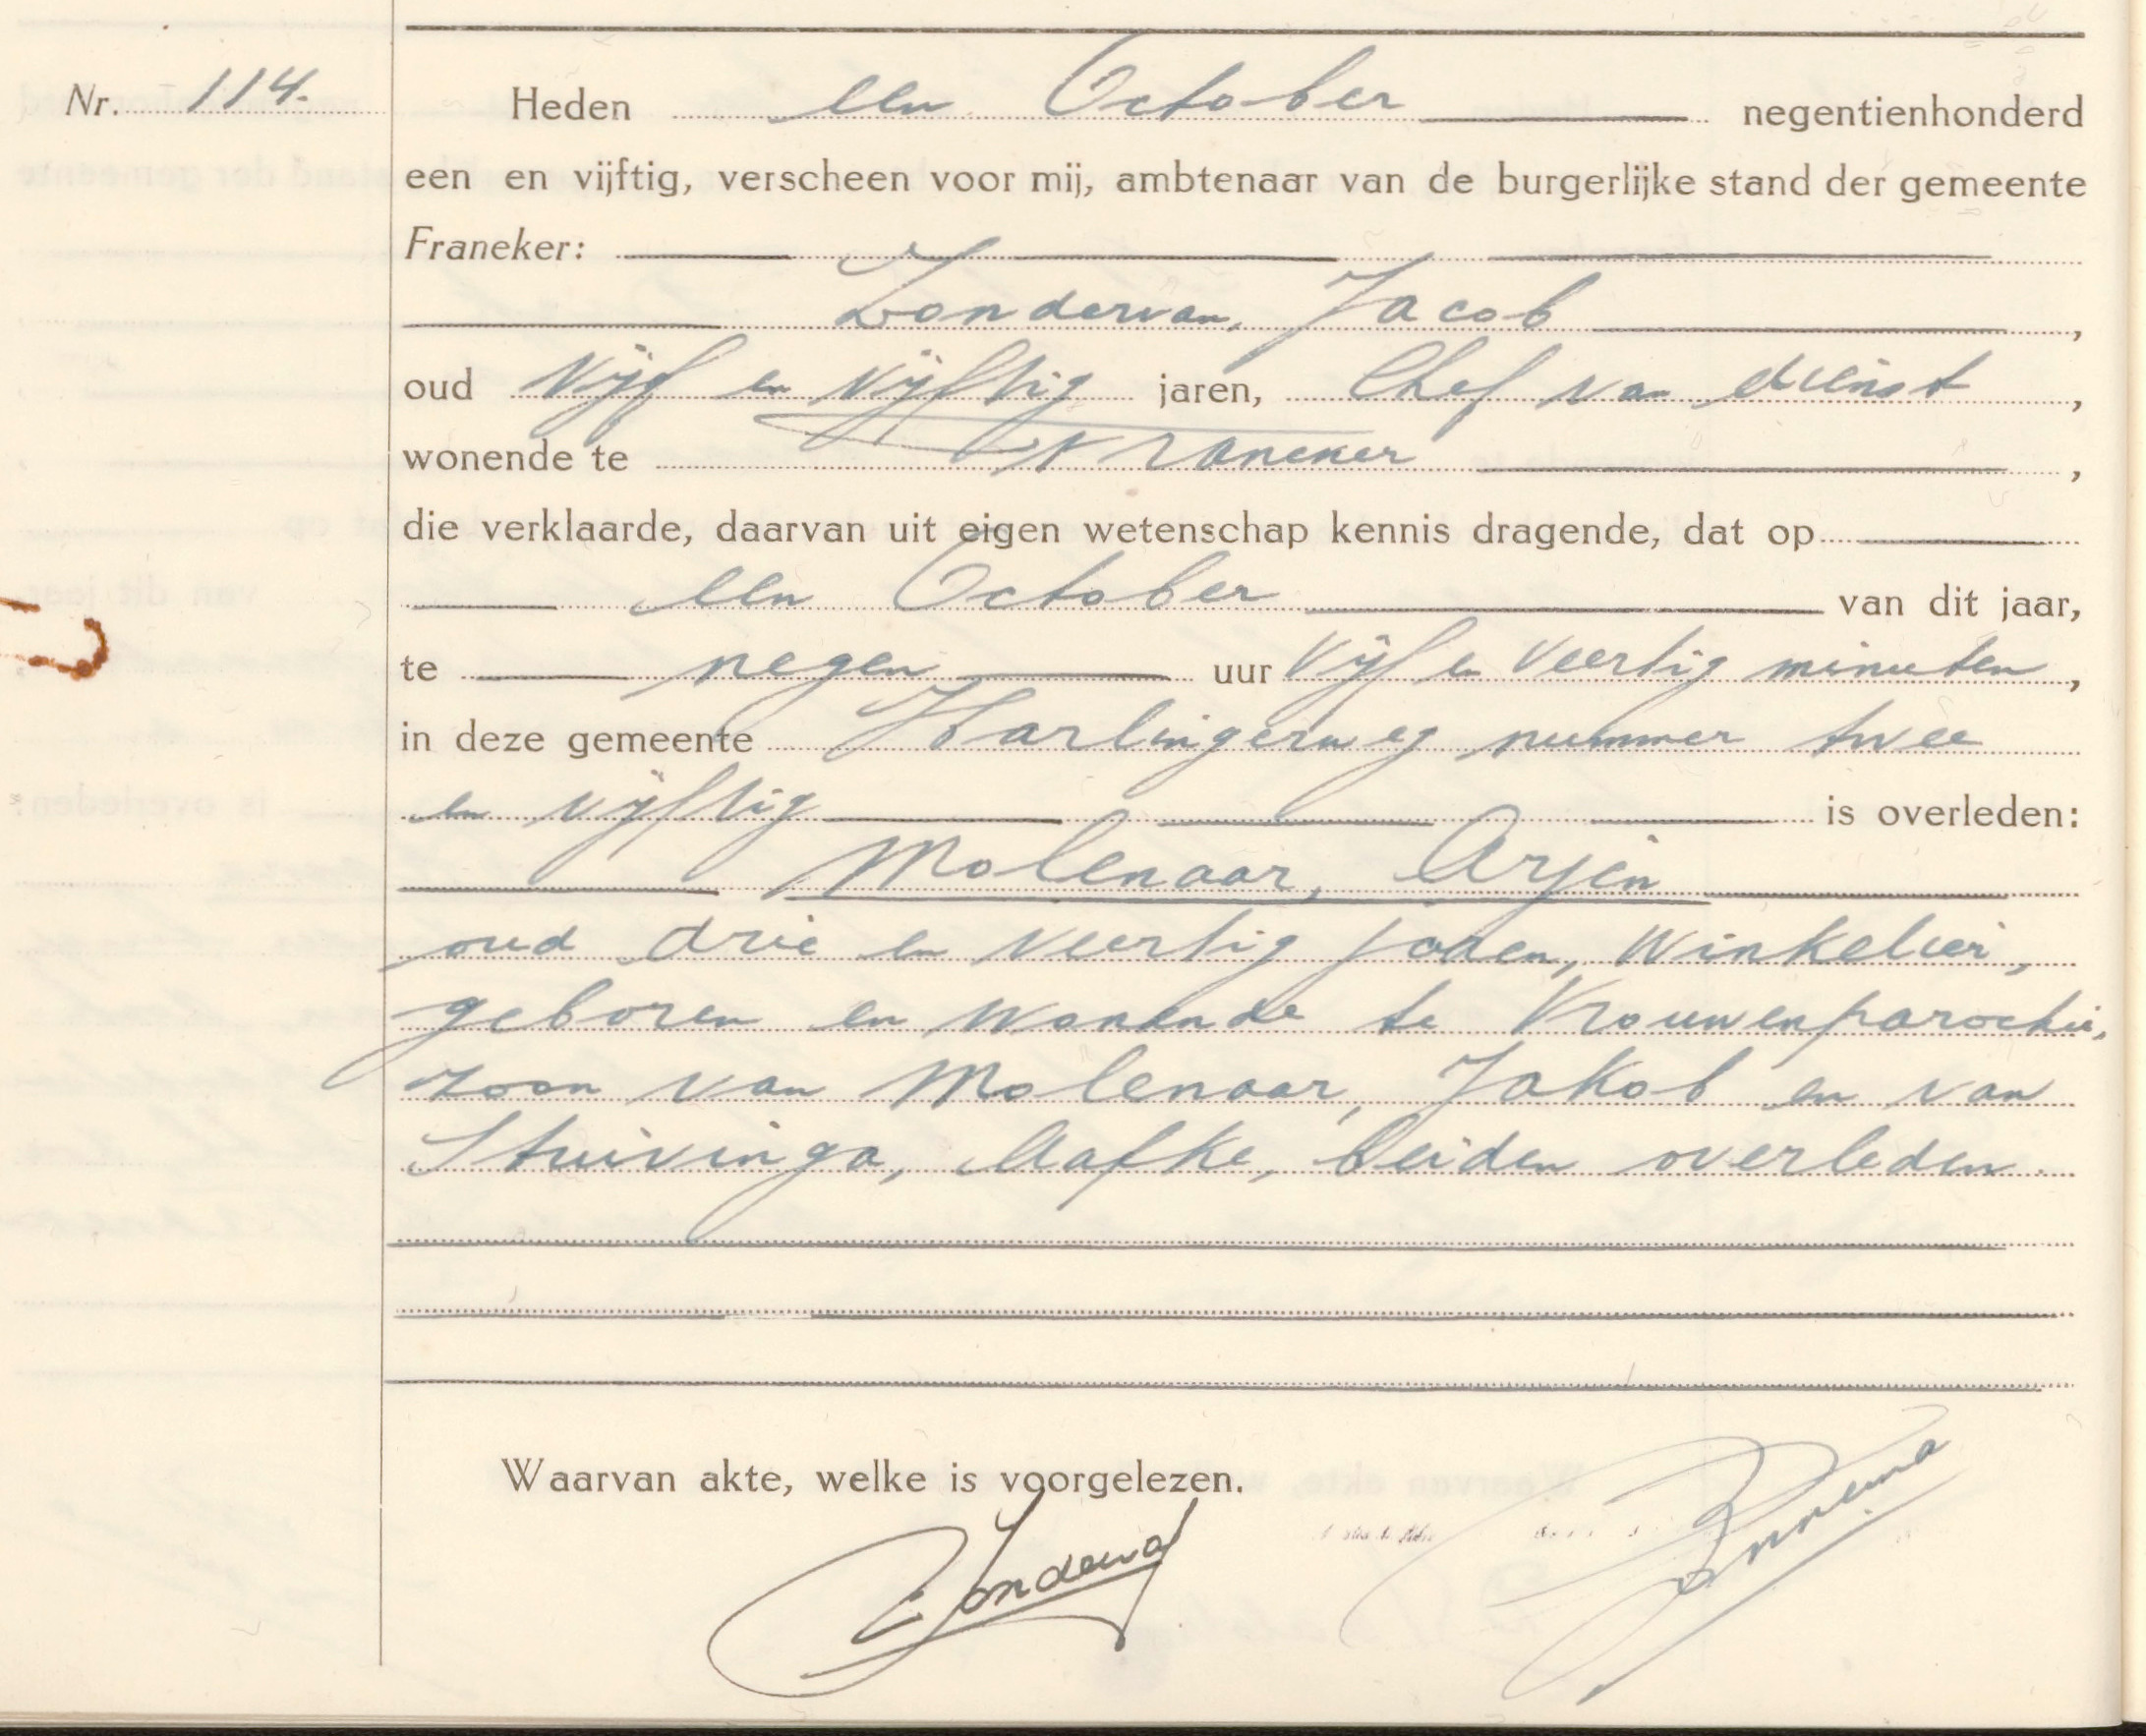 Nr. 114.
Heden een October negentienhonderd
een en vijftig, verscheen voor mij, ambtenaar van de burgerlijke stand der gemeente
Franeker:
Zondervan, Jacob ,
oud vijf en vijftig jaren, Chef van dienst ,
wonende te Franeker ,
die verklaarde, daarvan uit eigen wetenschap kennis dragende, dat op
een October van dit jaar,
te negen uur vijf en veertig minuten ,
in deze gemeente Harlingerweg nummer twee
en vijftig is overleden:
Molenaar, Arjen
oud drie en veertig jaren, winkelier,
geboren en wonende te Vrouwenparochie,
zoon van Molenaar, Jakob en van
Stuivinga, Aafke, beiden overleden.
Waarvan akte, welke is voorgelezen.